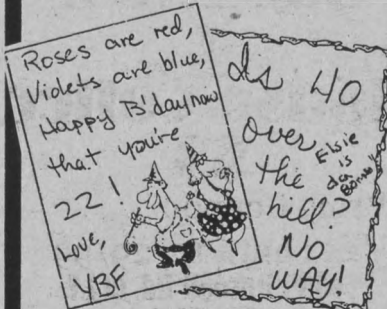 Roses are red,
Violets are blue,
Happy B'day now
that you're
22!
Love,
YBF
Is 40
over
the
hill?
NO
WAY!
Elsie
is
da